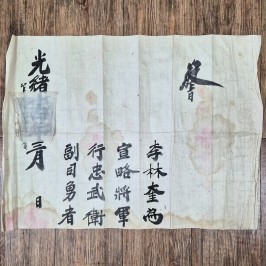 敎旨
李林奎為
宣略將軍
行忠武衛
副司勇者
光緒
月 日